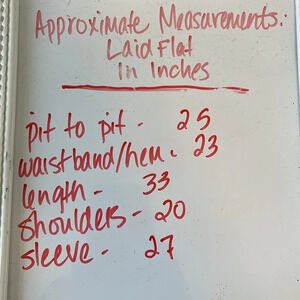 Approximate Measurements:
Laid Flat
In Inches
pit to pit - 25
waistband/hem - 23
length - 33
shoulders - 20
sleeve - 27